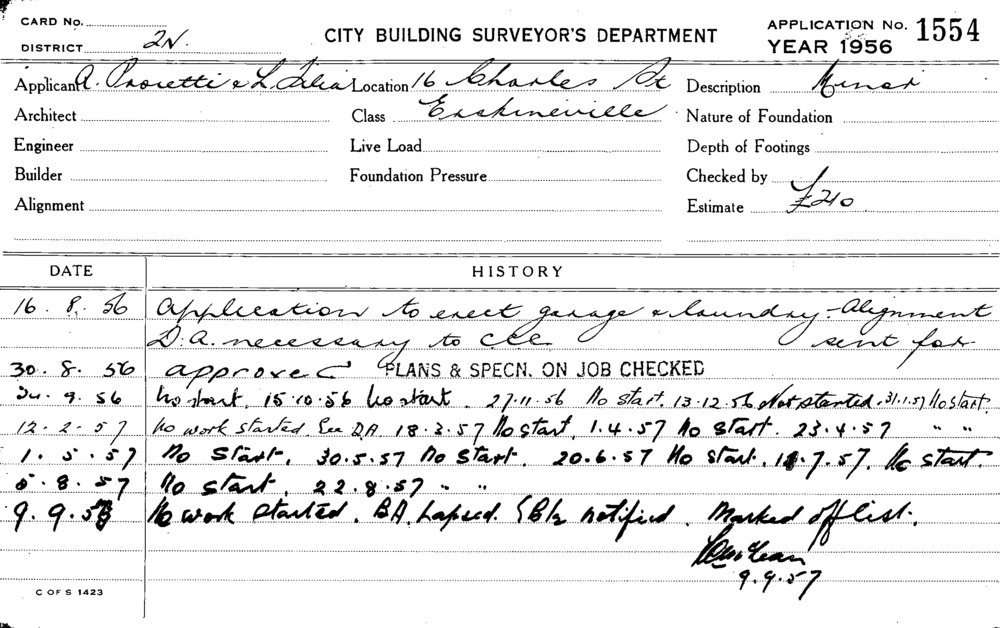 CARD No.
DISTRICT 2N.
CITY BUILDING SURVEYOR'S DEPARTMENT
APPLICATION No. 1554
YEAR 1956
Applicant A. Proietti & L. Filia Location 16 Charles St Description Minor
Architect Class Erskineville Nature of Foundation
Engineer Live Load Depth of Footings
Builder Foundation Pressure Checked by
Alignment Estimate £210
DATE HISTORY
16. 8. 56 Application to erect garage & laundry - Alignment
D.A. necessary to CCC sent for
30. 8. 56 approved PLANS & SPECN. ON JOB CHECKED
24. 9. 56 No start. 15.10.56 No start. 27.11.56 No start. 13.12.56 Not started. 31.1.57 No start.
12. 2. 57 No work started. See DA 18.3.57 No start. 1.4.57 No start. 23.4.57 " "
1. 5. 57 No start. 30.5.57 No start. 20.6.57 No start. 7.57. No start.
5. 8. 57 No start. 22.8.57 " "
9. 9. 57 No work started. BA. Lapsed. notified. Marked off list.
9.9.57
C OF S 1423